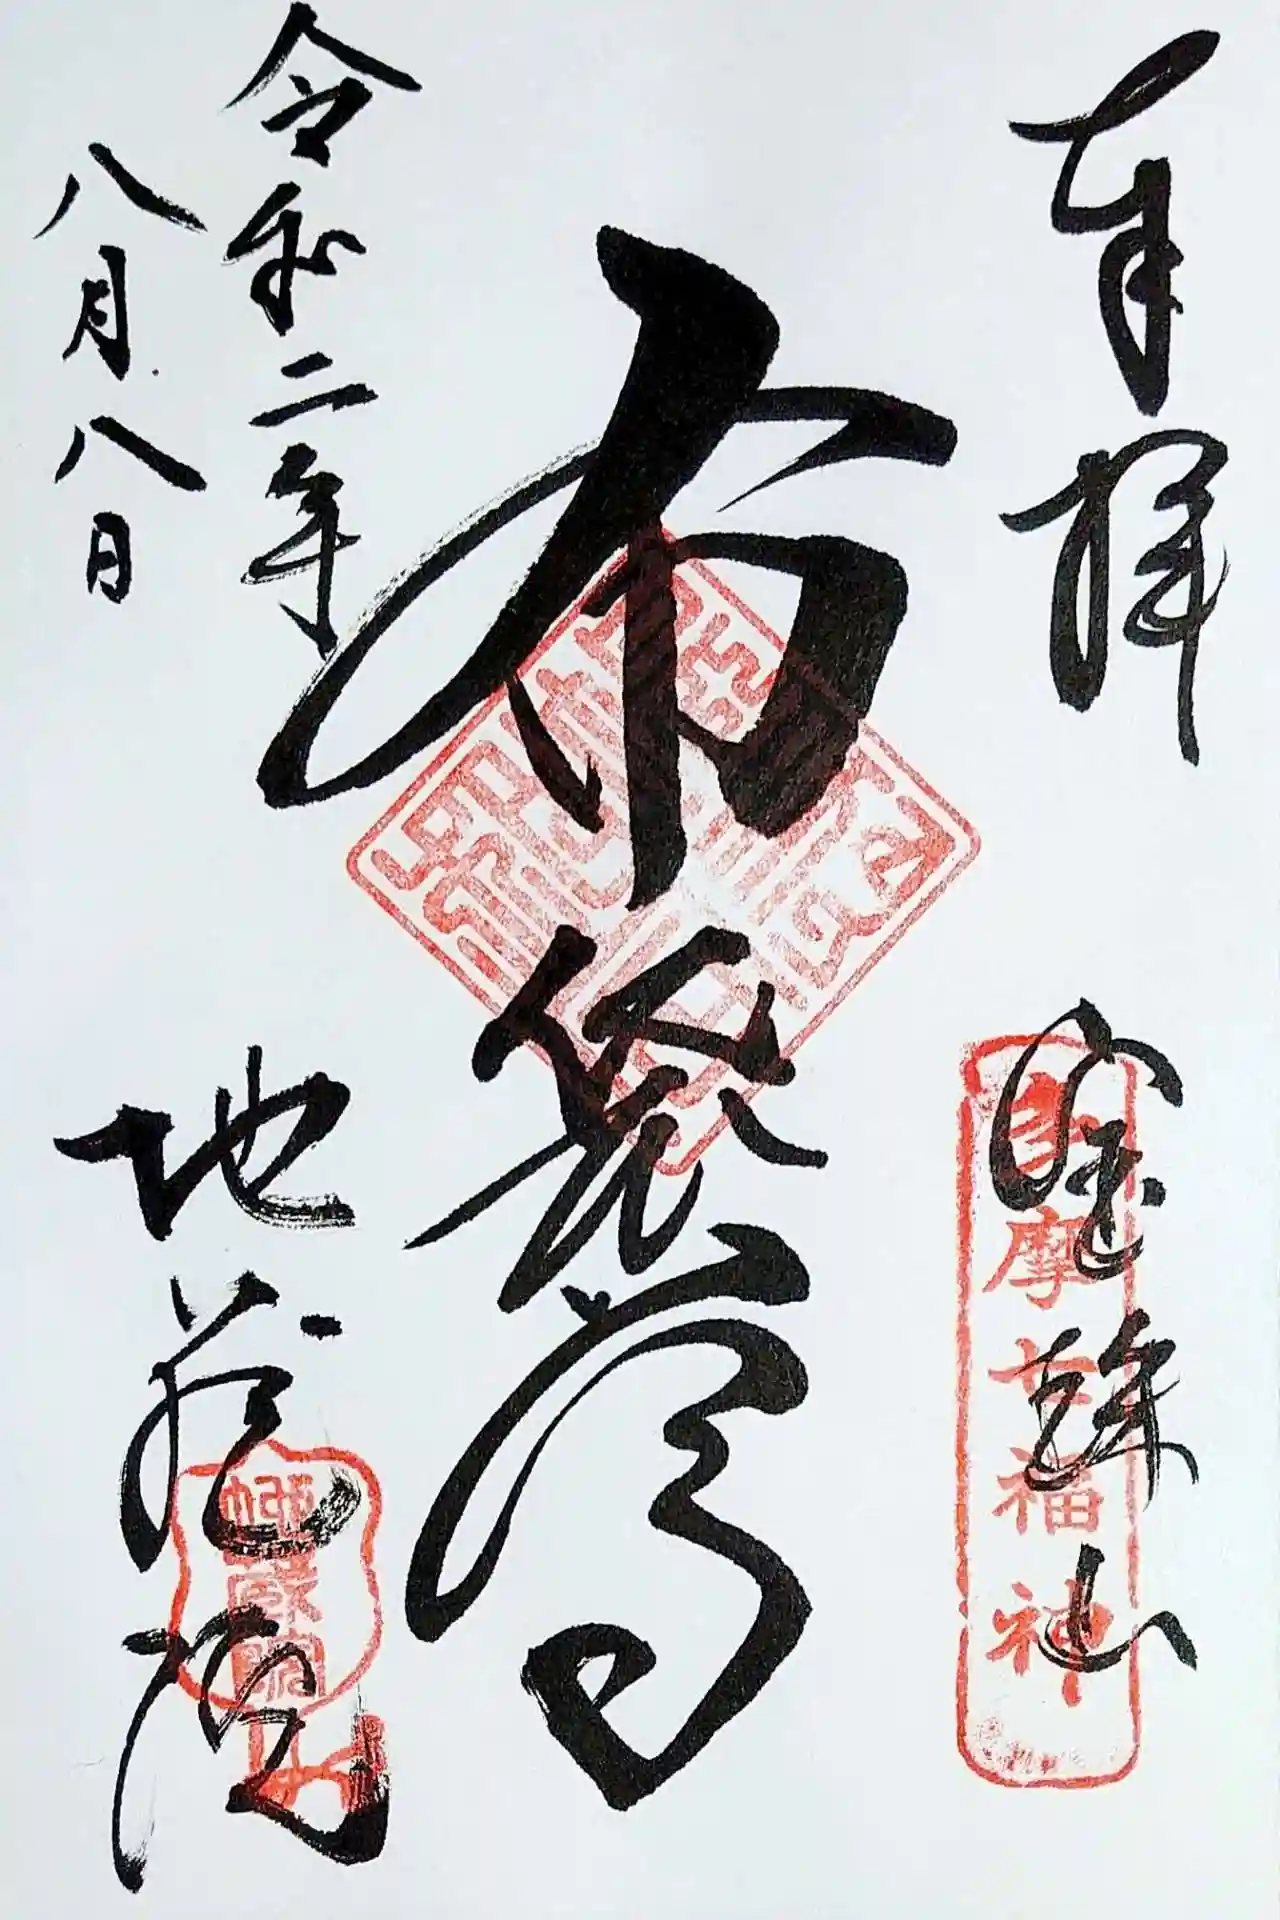 奉拝
多摩七福神
宝珠山
布袋尊
令和二年
八月八日
地蔵院